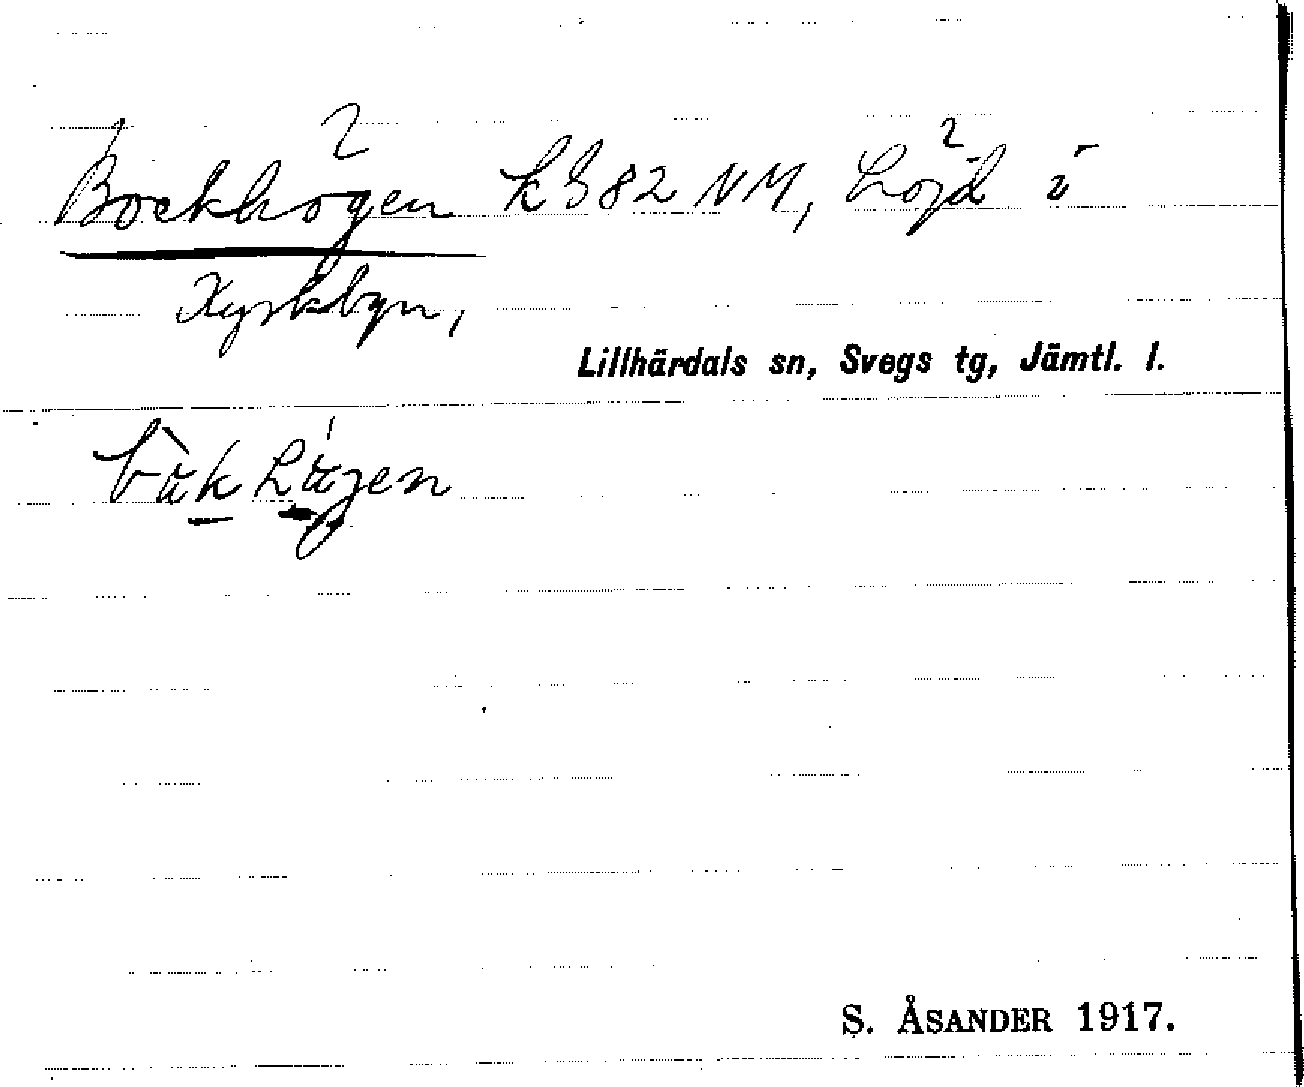 Bockhögen k382 NM, Löjd i
Kyrkbyn,
Lillhärdals sn, Svegs tg, Jämtl. l.
S. ÅSANDER 1917.